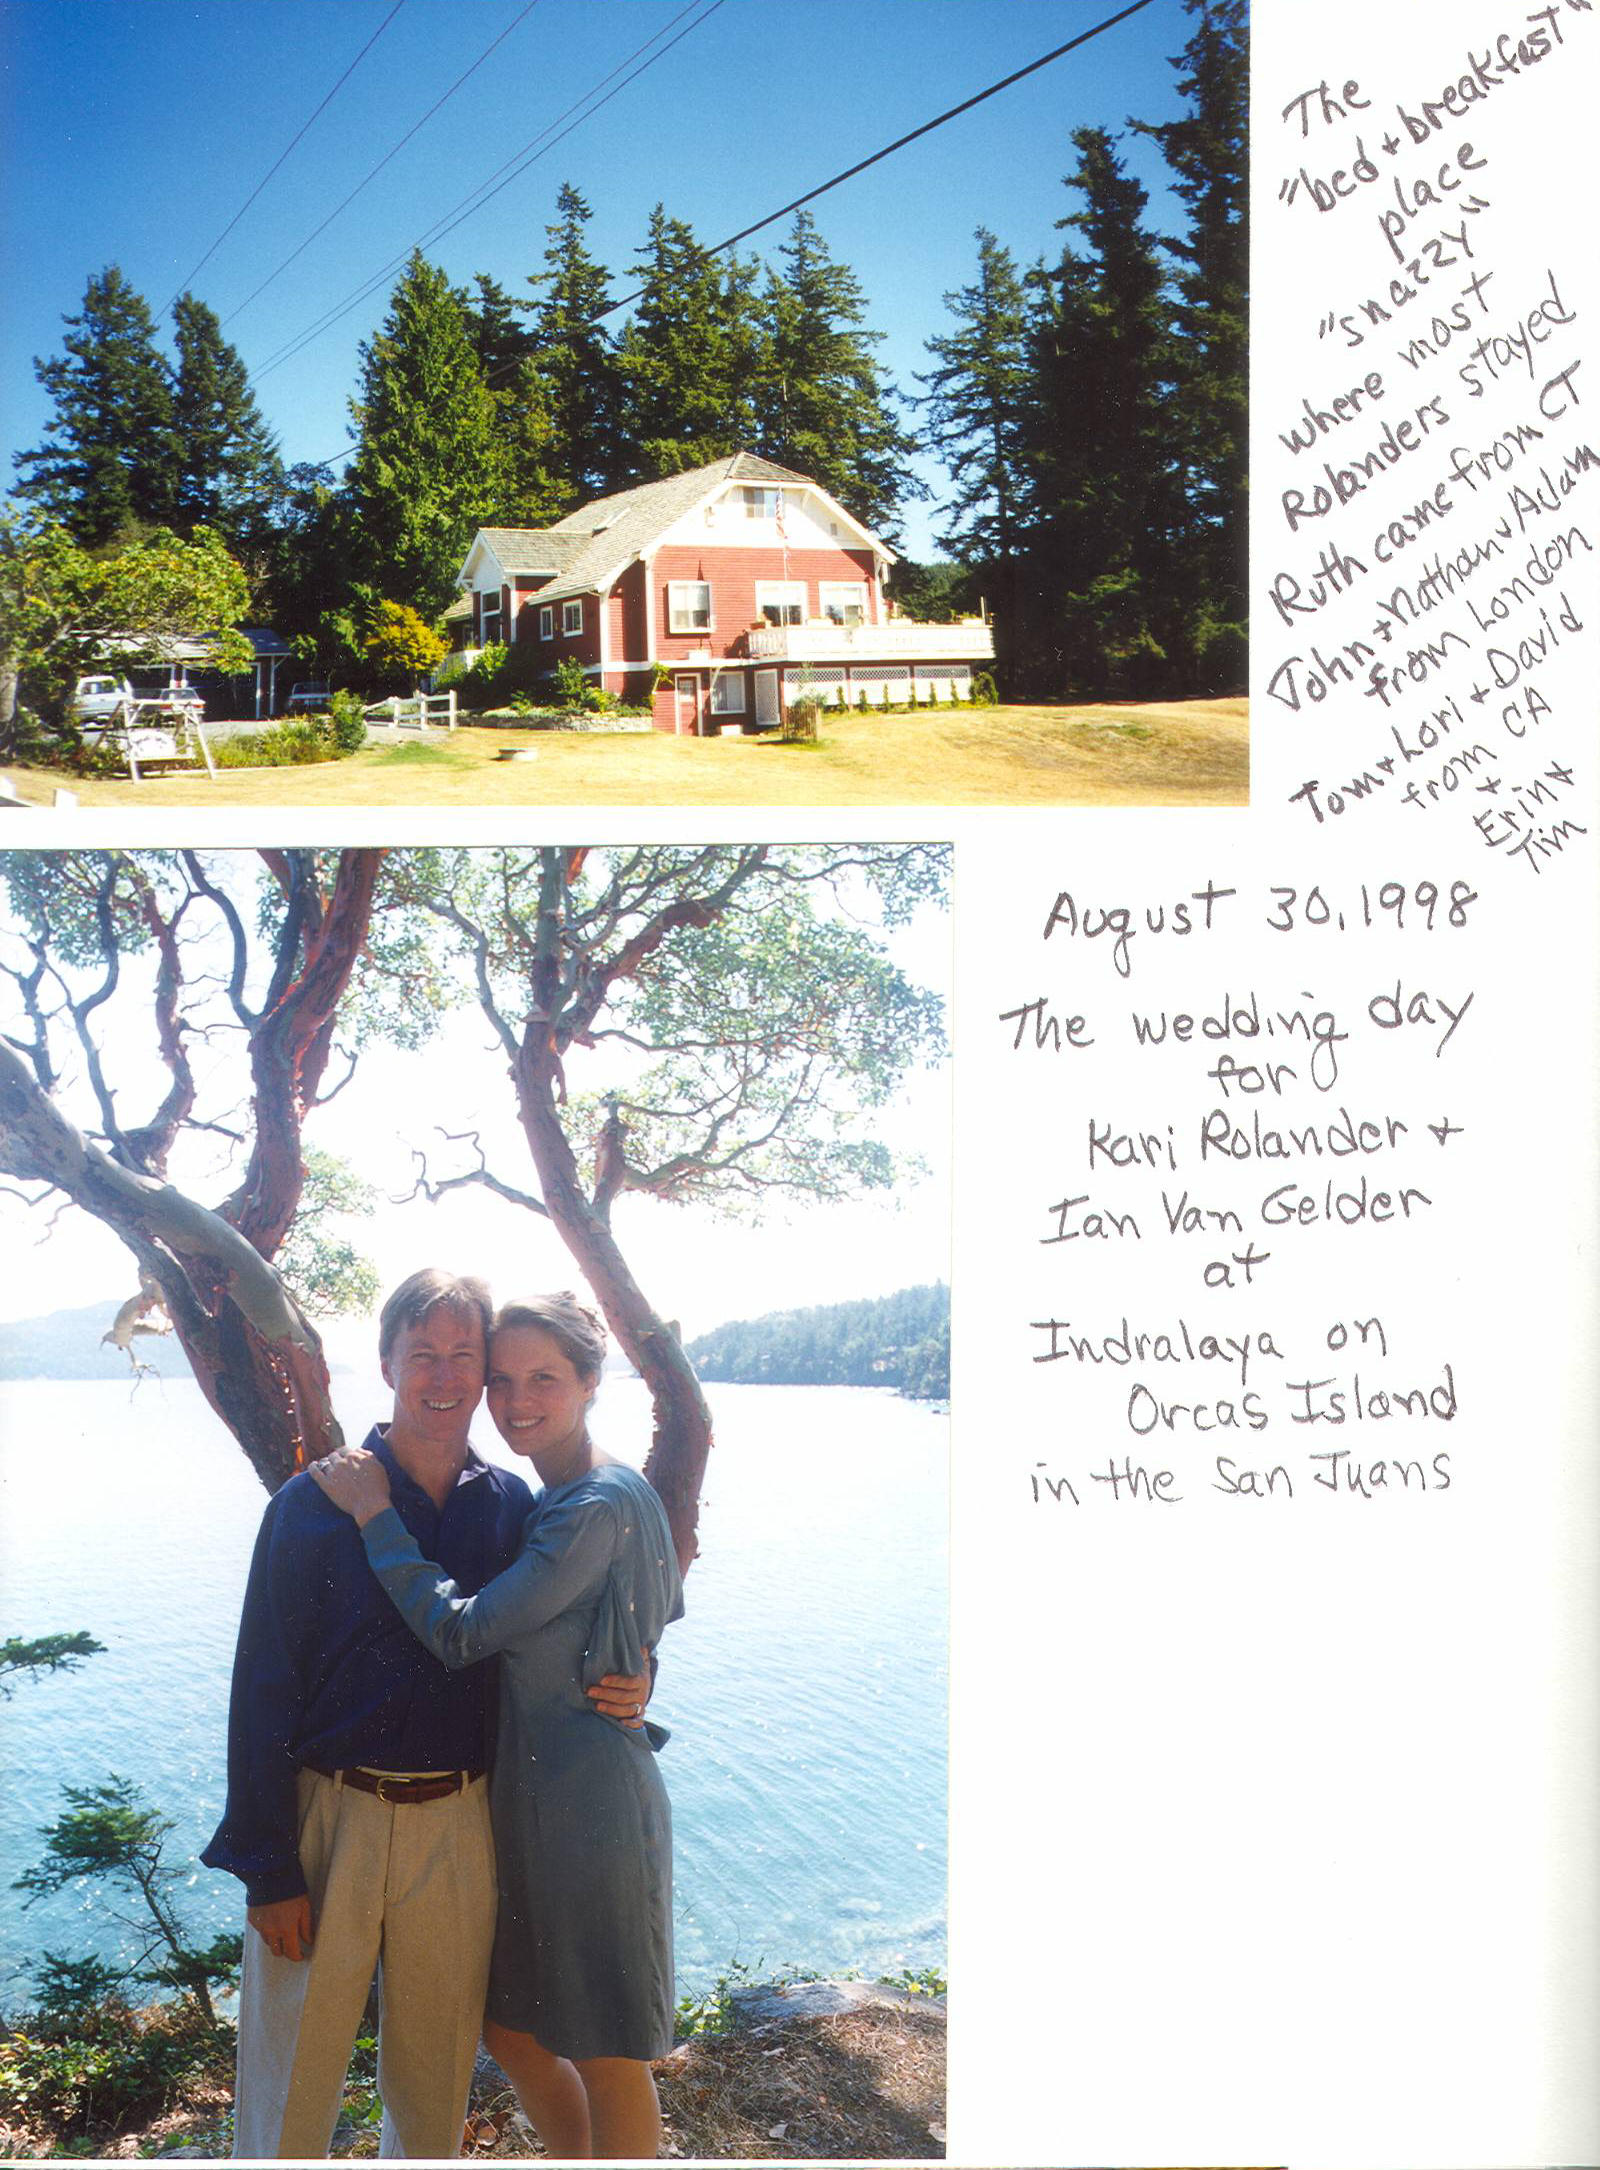 The
"bed + breakfast"
place
"snazzy"
where most
Rolanders stayed
Ruth came from CT
John + Nathan + Adam
from London
Tom + Lori + David
from CA
+
Erin +
Tim
August 30, 1998
The wedding day
for
Kari Rolander +
Ian Van Gelder
at
Indralaya on
Orcas Island
in the San Juans